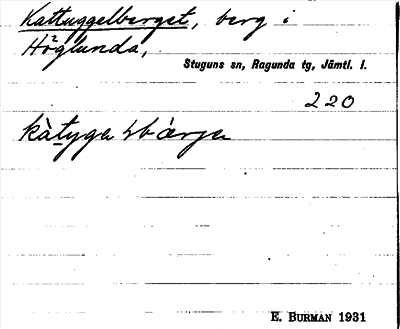 Kattuggelberget, berg i
Höglunda,
Stuguns sn, Ragunda tg, Jämtl. l.
220
E. BURMAN 1931